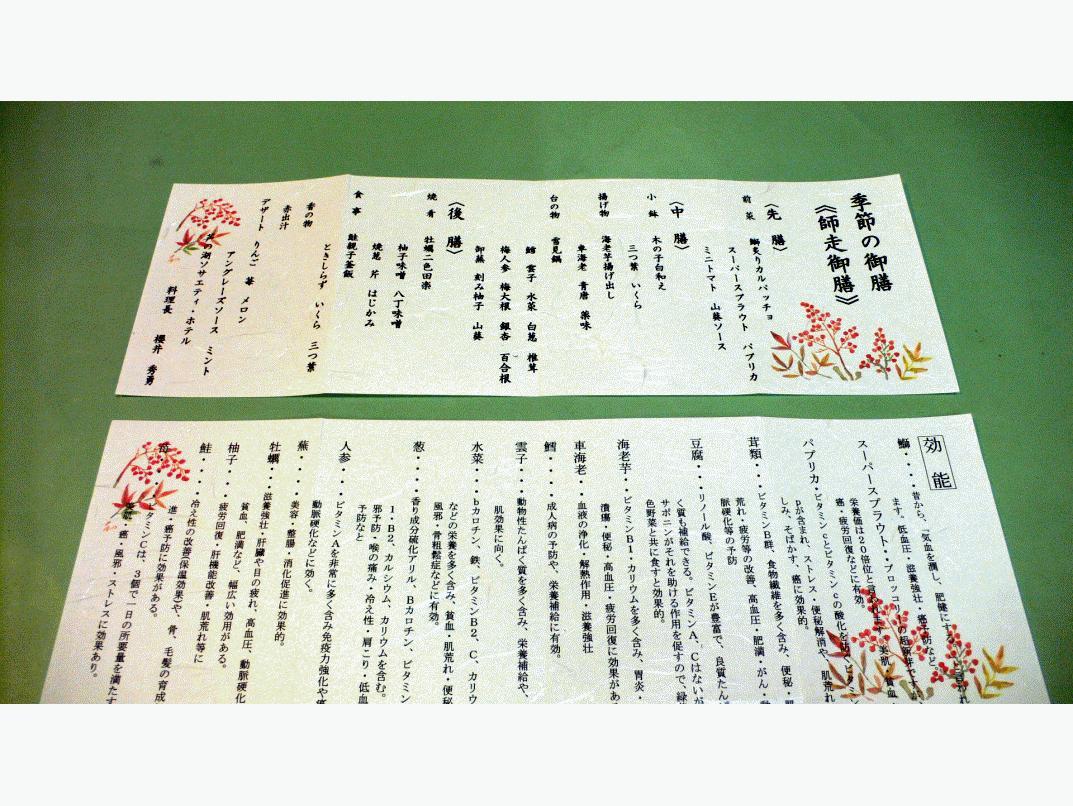 季節の御膳
《師走御膳》
〈先 膳〉
前 菜 鰤炙りカルパッチョ
スーパースプラウト パプリカ
ミニトマト 山葵ソース
〈中 膳〉
小 鉢 木の子白和え
三つ葉 いくら
揚げ物 海老芋揚げ出し
車海老 青唐 薬味
台の物 雪見鍋
鱈 雲子 水菜 白葱 椎茸
梅人参 梅大根 銀杏 百合根
御蕪 刻み柚子 山葵
〈後 膳〉
焼 肴 牡蠣二色田楽
柚子味噌 八丁味噌
焼葱 芹 はじかみ
食 事 鮭親子釜飯
ときしらず いくら 三つ葉
香の物
赤出汁
デザート りんご 苺 メロン
アングレーズソース ミント
の湖ソサエティ・ホテル
料理長 櫻井 秀勇
効 能
鰤・・・昔から、「気血を潤し、肥健にする
ます。低血圧・滋養強壮・癌予防など。
スーパースプラウト・・ブロッコリーの
栄養価は20倍位と言われます。美肌・貧血
癌・疲労回復などに有効。
パプリカ・ビタミンcとビタミンcの酸化を防ぐビタミン
pが含まれ、ストレス・便秘解消や、肌荒れ
しみ、そばかす、癌に効果的。
茸類・・ビタミンB群、食物繊維を多く含み、便秘・肌
荒れ・疲労等の改善、高血圧・肥満・がん・動
脈硬化等の予防
豆腐・・リノール酸、ビタミンEが豊富で、良質たんぱ
く質も補給できる。ビタミンA、Cはないが
サポニンがそれを助ける作用を促すので、緑
色野菜と共に食すと効果的。
海老芋・ビタミンB1・カリウムを多く含み、胃炎・
潰瘍・便秘・高血圧・疲労回復に効果があ
車海老・血液の浄化・解熱作用・滋養強壮
鱈・・・成人病の予防や、栄養補給に有効。
雲子・・動物性たんぱく質を多く含み、栄養補給や、
肌効果に向く。
水菜・・bカロチン、鉄、ビタミンB2、C、カリウ
などの栄養を多く含み、貧血・肌荒れ・便秘
風邪・骨粗鬆症などに有効。
葱・・・香り成分硫化アリル、Bカロチン、ビタミン
1・B2、カルシウム、カリウムを含む。
邪予防・喉の痛み・冷え性・肩こり・低血
予防など。
人参・・ビタミンAを非常に多く含み免疫力強化や
動脈硬化などに効く。
蕪・・・美容・整腸・消化促進に効果的。
牡蠣・・滋養強壮・肝臓や目の疲れ、高血圧、動脈硬化
貧血、肥満など、幅広い効用がある。
柚子・・疲労回復・肝機能改善・肌荒れ等に
鮭・・・冷え性の改善(保温効果)や、骨、毛髪の育成
進・癌予防に効果がある。
苺・・・ビタミンCは、3個で一日の所要量を満たす
癌・風邪・ストレスに効果あり。